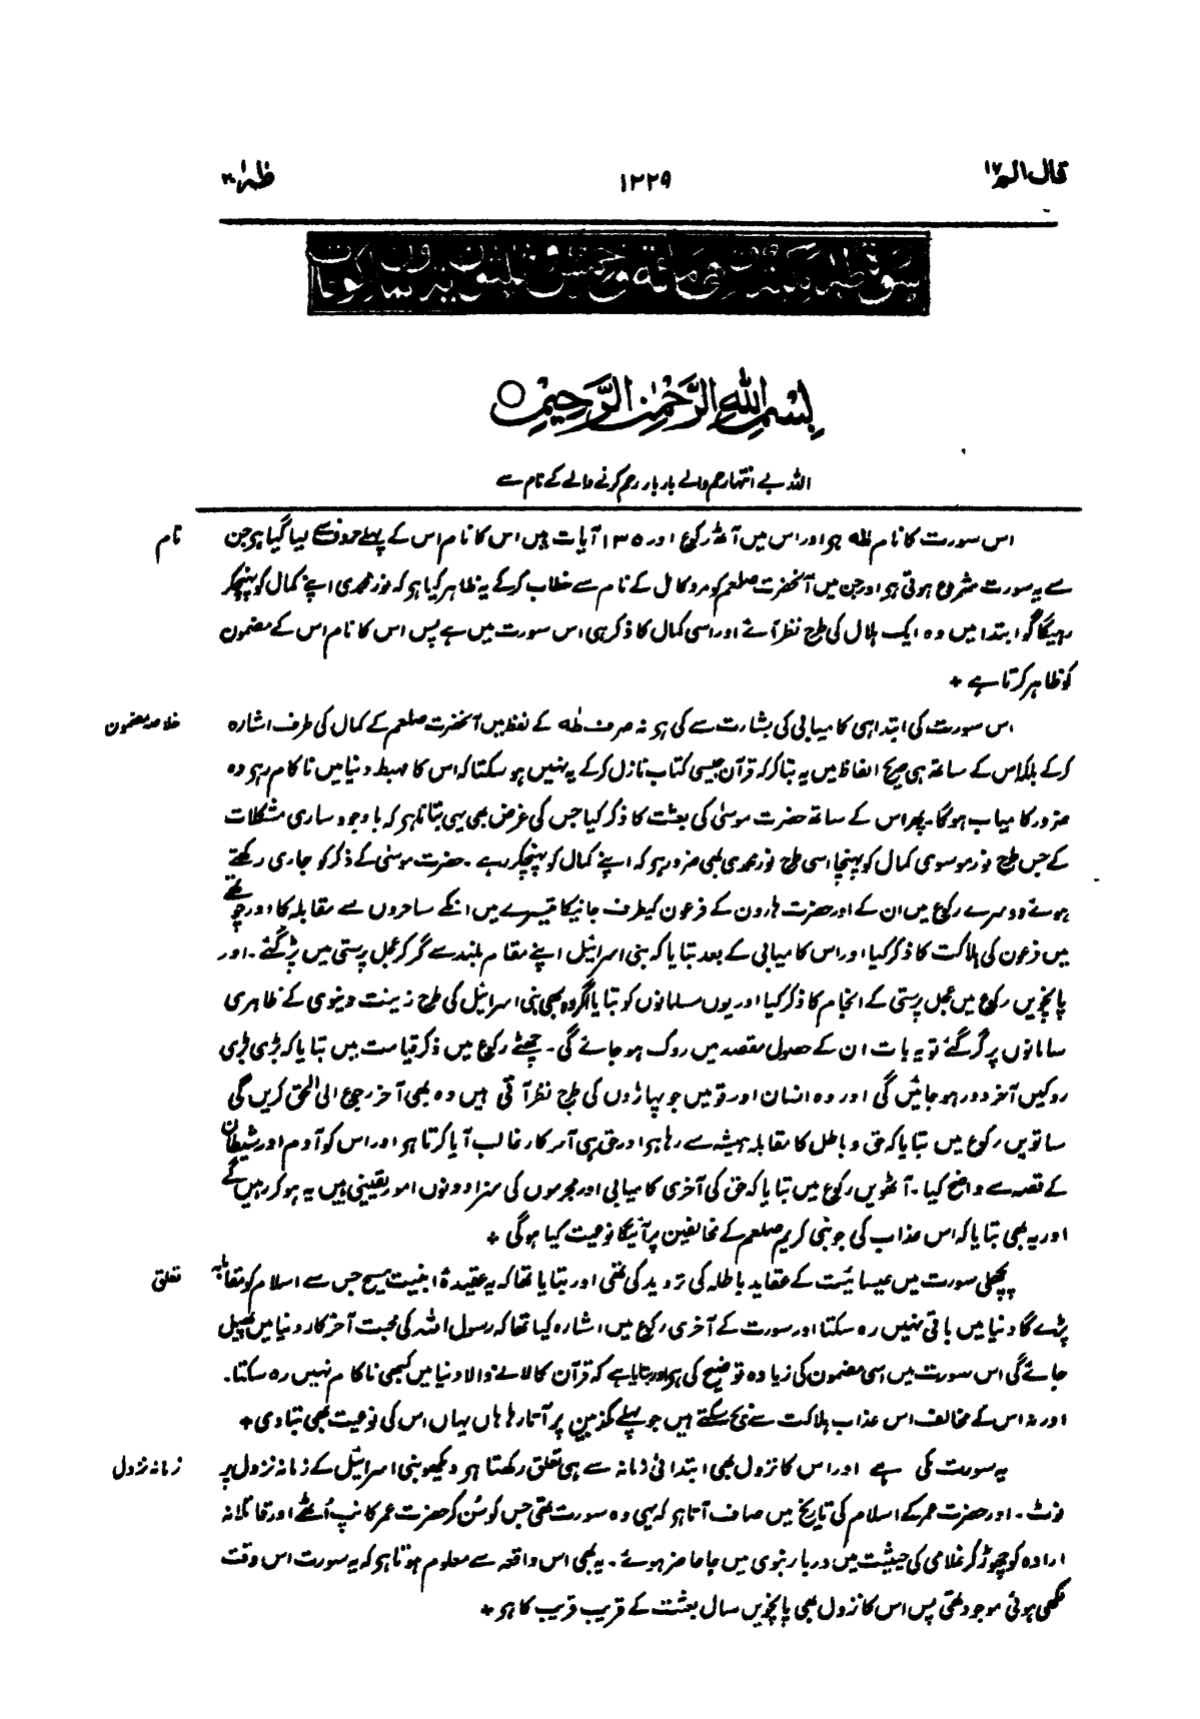 قال الم ١٦
١٢٢٩
طٰہٰ ٢٠
بِسْمِ اللهِ الرَّحْمٰنِ الرَّحِيْمِ ○
اللہ بے انتہا رحم والے بار بار رحم کرنے والے کے نام سے
نام
اس سورت کا نام طٰہٰ ہو اور اس میں آٹھ رکوع اور ۱۳۵ آیات ہیں اس کا نام اس کے پہلے حروف سے لیا گیا ہو جن
سے یہ سورت شروع ہوتی ہو اور جن میں آنحضرت صلعم کو مرد کامل کے نام سے خطاب کر کے یہ ظاہر کیا ہو کہ نور محمدی اپنے کمال کو پہنچکر
رہیگا گو ابتدا میں وہ ایک ہلال کی طرح نظر آئے اور اسی کمال کا ذکر ہی اس سورت میں ہے پس اس کا نام اس کے مضمون
کو ظاہر کرتا ہے +
خلاصہ مضمون
اس سورت کی ابتدا ہی کامیابی کی بشارت سے کی ہو نہ صرف طٰہٰ کے لفظ میں آنحضرت صلعم کے کمال کی طرف اشارہ
کر کے بلکہ اس کے ساتھ ہی صریح الفاظ میں یہ بتا کر کہ قرآن جیسی کتاب نازل کر کے یہ نہیں ہو سکتا کہ اس کا مہبط دنیا میں ناکام رہو وہ
ضرور کامیاب ہوگا۔ پھر اس کے ساتھ حضرت موسیٰ کی بعثت کا ذکر کیا جس کی غرض بھی یہی بتانا ہو کہ باوجود ساری مشکلات
کے جس طرح نور موسوی کمال کو پہنچا اسی طرح نور محمدی بھی ضرور ہو کہ اپنے کمال کو پہنچکر رہے۔ حضرت موسیٰ کے ذکر کو جاری رکھتے
ہوئے دوسرے رکوع میں ان کے اور حضرت ہارون کے فرعون کیطرف جانیکا تیسرے میں انکے ساحروں سے مقابلہ کا اور چوتھے
میں فرعون کی ہلاکت کا ذکر کیا اور اس کامیابی کے بعد بتایا کہ بنی اسرائیل اپنے مقام بلند سے گر کر عجل پرستی میں پڑ گئے۔ اور
پانچویں رکوع میں عجل پرستی کے انجام کا ذکر کیا اور یوں مسلمانوں کو بتایا اگر وہ بھی بنی اسرائیل کی طرح زینت دنیوی کے ظاہری
سامانوں پر گر گئے تو یہ بات ان کے حصول مقصد میں روک ہو جائے گی۔ چھٹے رکوع میں ذکر قیامت میں بتایا کہ بڑی بڑی
روکیں آخر دور ہو جائیں گی اور وہ انسان اور قومیں جو پہاڑوں کی طرح نظر آتی ہیں وہ بھی آخر رجوع الی الحق کریں گی
ساتویں رکوع میں بتایا کہ حق و باطل کا مقابلہ ہمیشہ سے رہا ہو اور حق ہی آخر کار غالب آیا کرتا ہو اور اس کو آدم اور شیطان
کے قصہ سے واضح کیا۔ آٹھویں رکوع میں بتایا کہ حق کی آخری کامیابی اور مجرموں کی سزا دونوں امور یقینی ہیں یہ ہو کر رہیں گے
اور یہ بھی بتایا کہ اس عذاب کی جو نبی کریم صلعم کے مخالفین پر آئیگا نوعیت کیا ہوگی +
تعلق
پچھلی سورت میں عیسائیت کے عقاید باطلہ کی تردید کی تھی اور بتایا تھا کہ یہ عقیدۂ ابنیت مسیح جس سے اسلام کو مقابلہ
پڑے گا دنیا میں باقی نہیں رہ سکتا اور سورت کے آخری رکوع میں اشارہ کیا تھا کہ رسول اللہ کی محبت آخر کار دنیا میں پھیل
جائے گی اس سورت میں اسی مضمون کی زیادہ توضیح کی ہو اور بتایا ہے کہ قرآن کا لانے والا دنیا میں کبھی ناکام نہیں رہ سکتا۔
اور نہ اس کے مخالف اس عذاب ہلاکت سے بچ سکتے ہیں جو پہلے مکذبین پر آتا رہا ہاں یہاں اس کی نوعیت بھی بتا دی +
زمانہ نزول
یہ سورت مکی ہے اور اس کا نزول بھی ابتدائی زمانہ سے ہی تعلق رکھتا ہو دیکھو بنی اسرائیل کے زمانہ نزول پر
نوٹ۔ اور حضرت عمر کے اسلام کی تاریخ میں صاف آتا ہو کہ یہی وہ سورت تھی جس کو سُن کر حضرت عمر کانپ اُٹھے اور قاتلانہ
ارادہ کو چھوڑ کر غلامی کی حیثیت میں دربار نبوی میں جا حاضر ہوئے۔ یہ بھی اس واقعہ سے معلوم ہوتا ہو کہ یہ سورت اس وقت
لکھی ہوئی موجود تھی پس اس کا نزول بھی پانچویں سال بعثت کے قریب قریب کا ہو +